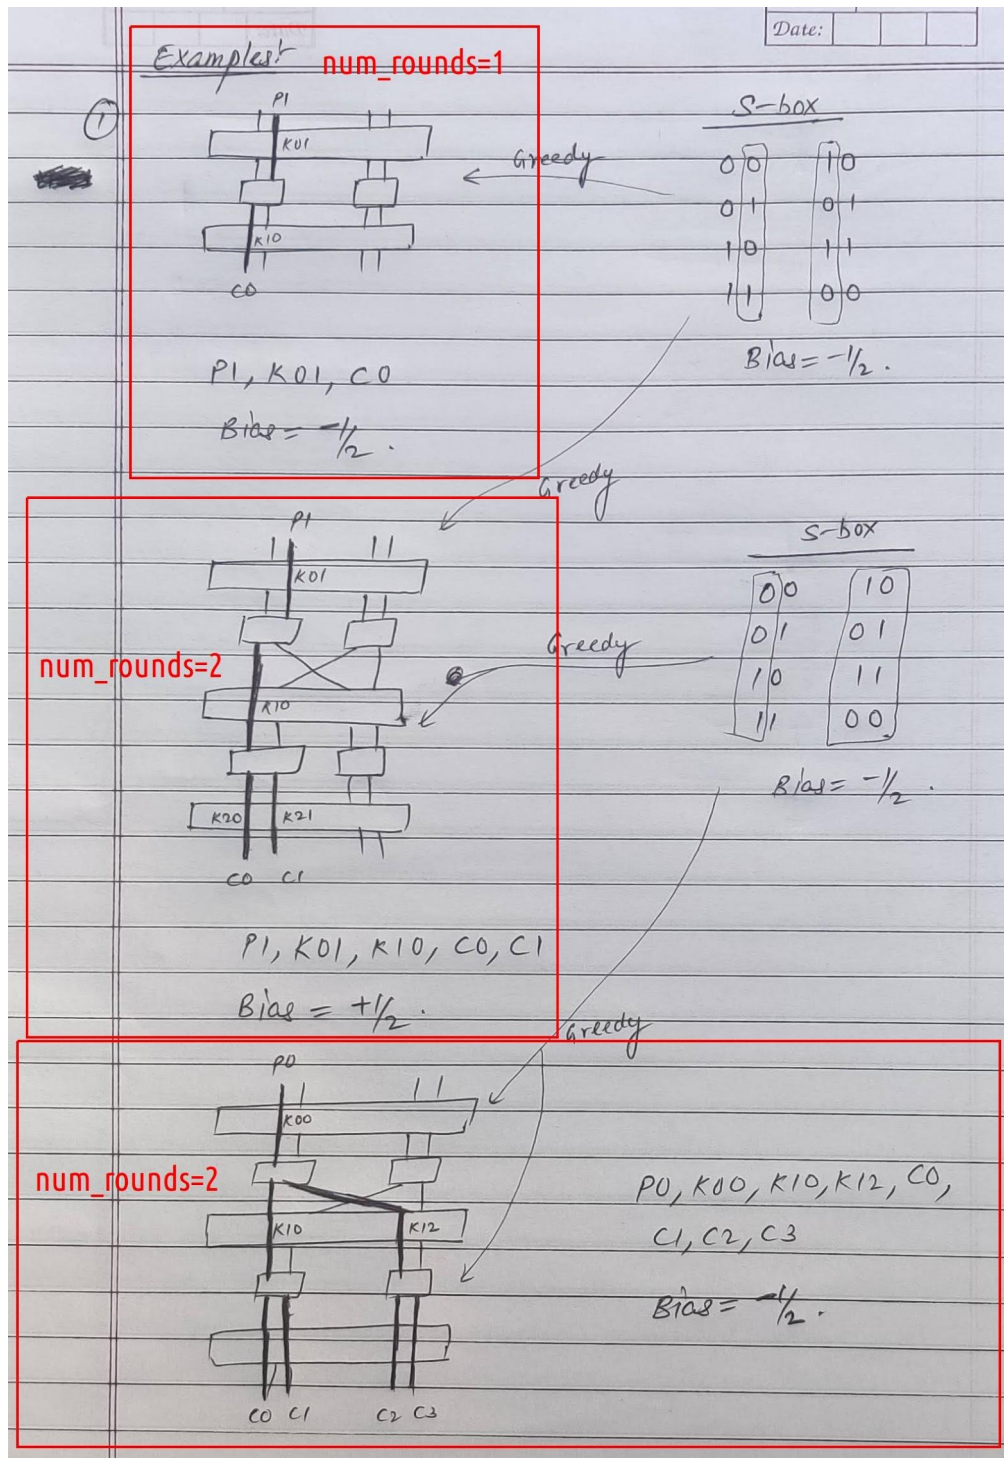 Date:
Examples:-
num_rounds=1
1
P1
K01
K10
C0
Greedy
S-box
0 0 1 0
0 1 0 1
1 0 1 1
1 1 0 0
Bias = -1/2.
P1, K01, C0
Bias = -1/2.
Greedy
num_rounds=2
P1
K01
K10
K20 K21
C0 C1
Greedy
S-box
0 0 1 0
0 1 0 1
1 0 1 1
1 1 0 0
Bias = -1/2.
P1, K01, K10, C0, C1
Bias = +1/2.
Greedy
num_rounds=2
P0
K00
K10 K12
C0 C1 C2 C3
P0, K00, K10, K12, C0,
C1, C2, C3
Bias = -1/2.